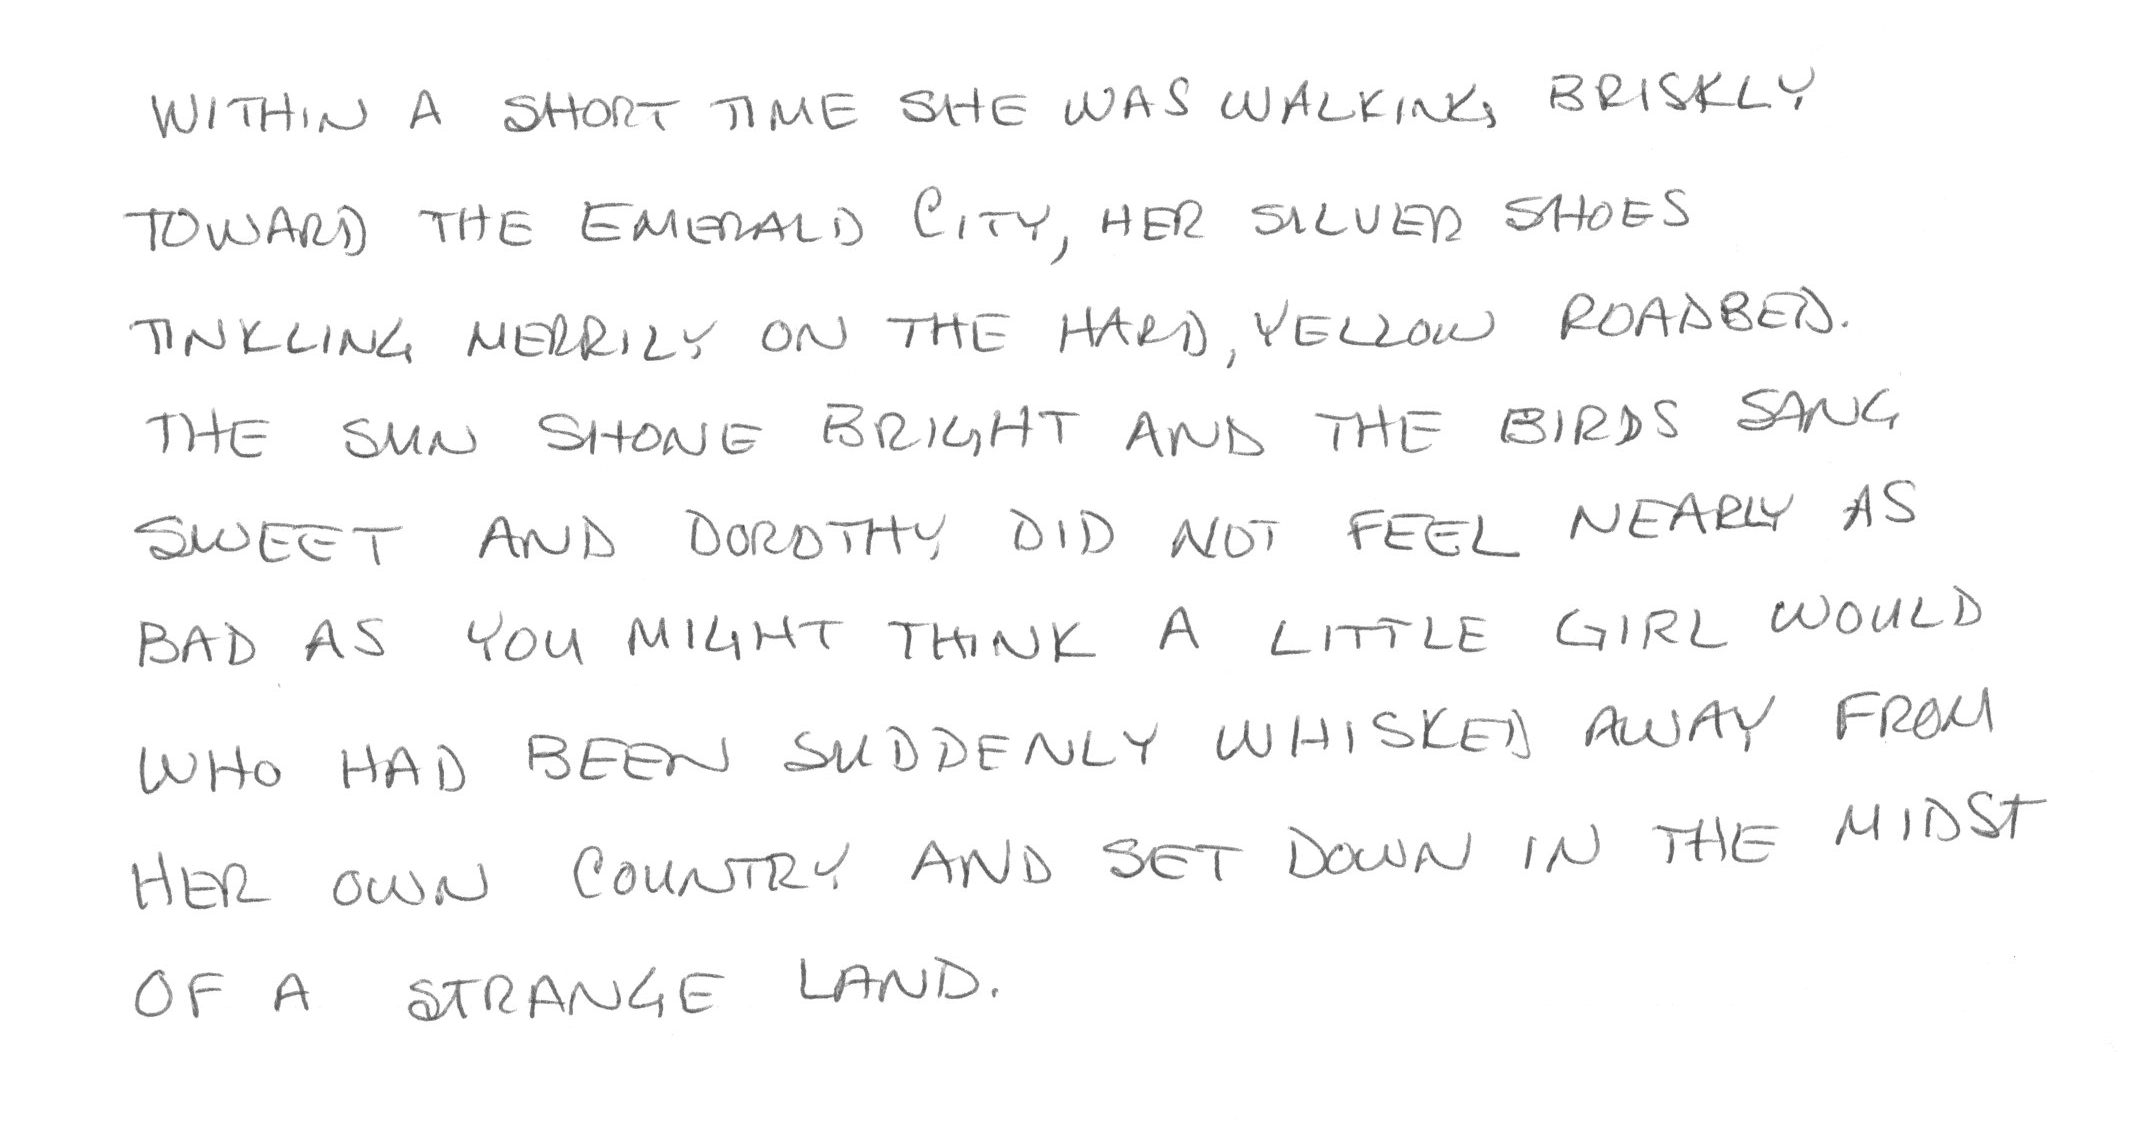 WITHIN A SHORT TIME SHE WAS WALKING BRISKLY
TOWARD THE EMERALD CITY, HER SILVER SHOES
TINKLING MERRILY ON THE HARD, YELLOW ROADBED.
THE SUN SHONE BRIGHT AND THE BIRDS SANG
SWEET AND DOROTHY DID NOT FEEL NEARLY AS
BAD AS YOU MIGHT THINK A LITTLE GIRL WOULD
WHO HAD BEEN SUDDENLY WHISKED AWAY FROM
HER OWN COUNTRY AND SET DOWN IN THE MIDST
OF A STRANGE LAND.